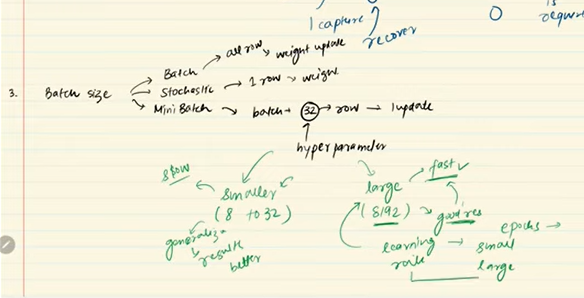 1 capture
recover
0
is
requir
3. Batch size
Batch → all row → weight update
Stochastic → 1 row → weight
Mini Batch → batch → 32 → row → 1 update
hyperparameter
slow
smaller
(8 to 32)
generaliza
results
better
large
(8192)
fast ✓
good res
learning
rate
epochs →
small
large